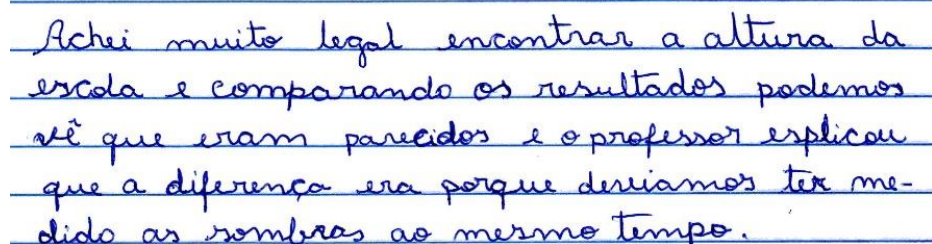 Achei muito legal encontrar a altura da
escola e comparando os resultados podemos
vê que eram parecidos e o professor esplicou
que a diferença era porque deviamos ter me-
dido as sombras ao mesmo tempo.